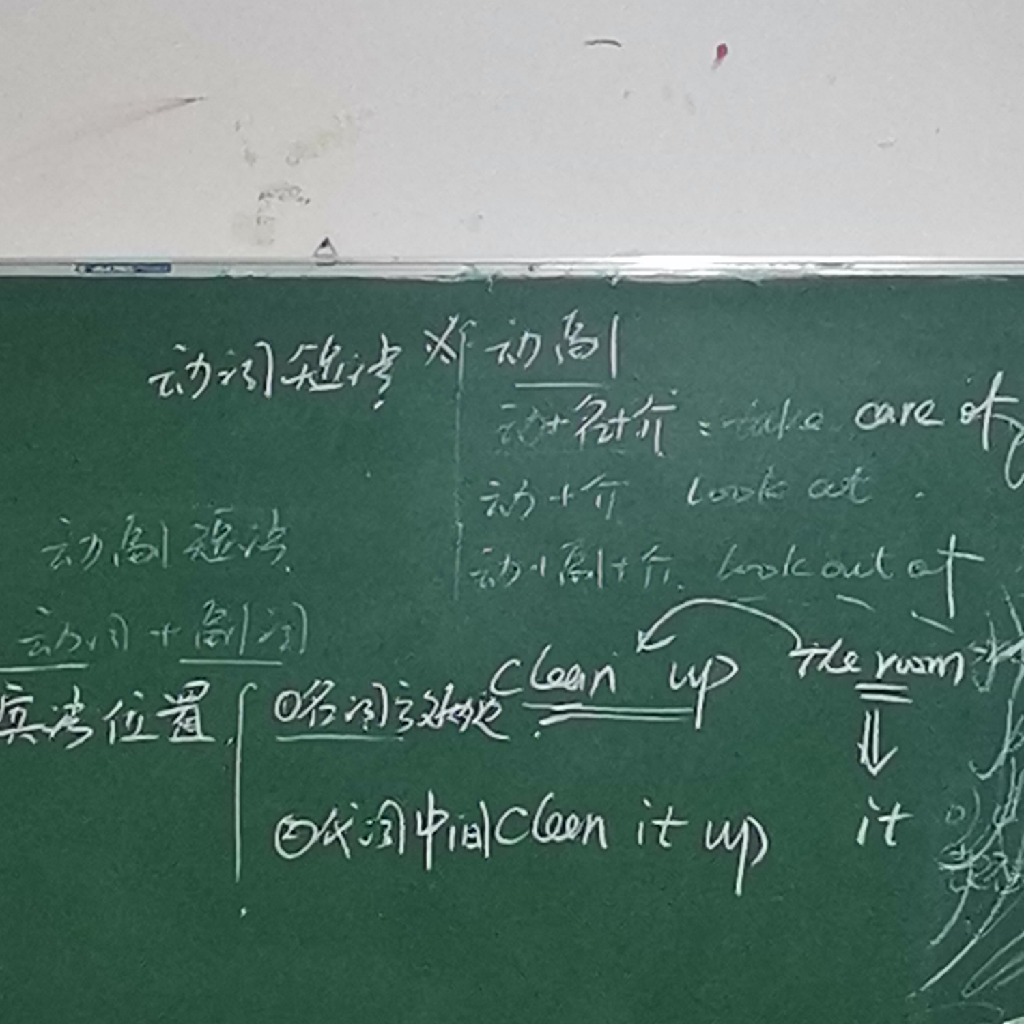 动词短语 动副
动+名+介: take care of
动+介 look at
动副短语 动+副+介. look out of
动词+副词
宾语位置 ①名词 clean up the room
②代词中间 clean it up it